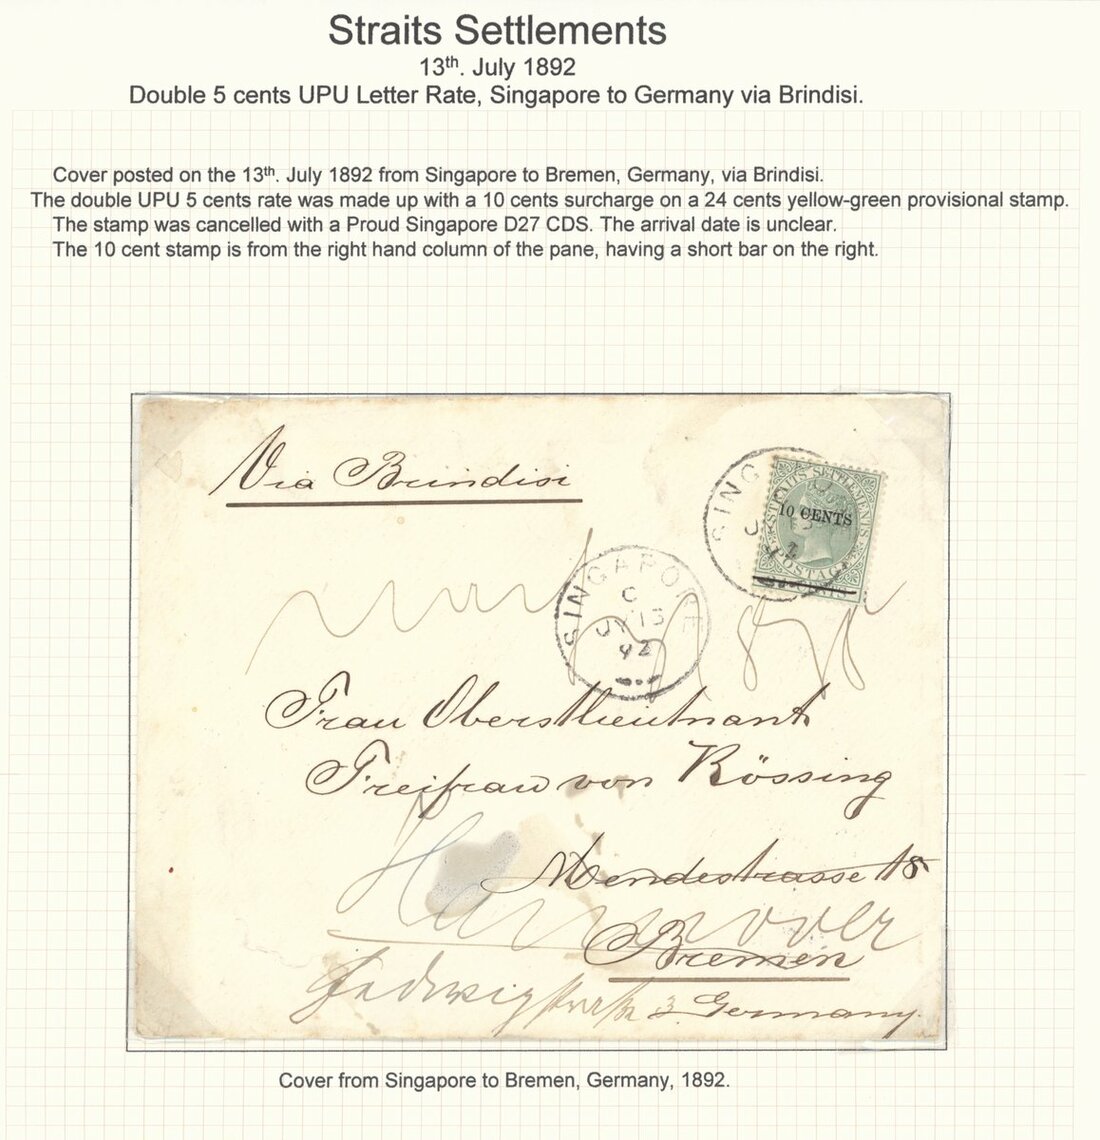 Straits Settlements
13th. July 1892
Double 5 cents UPU Letter Rate, Singapore to Germany via Brindisi.
Cover posted on the 13th. July 1892 from Singapore to Bremen, Germany, via Brindisi.
The double UPU 5 cents rate was made up with a 10 cents surcharge on a 24 cents yellow-green provisional stamp.
The stamp was cancelled with a Proud Singapore D27 CDS. The arrival date is unclear.
The 10 cent stamp is from the right hand column of the pane, having a short bar on the right.
Via Brindisi
SING
STRAITS SETTLEMENTS
10 CENTS
POSTAGE
SINGAPORE
C
JY 13
92
Frau Oberstlieutnant
Freifrau von Rössing
Mendestrasse 18
Hannover
Bremen
Hedwigstrasse 3 Germany.
Cover from Singapore to Bremen, Germany, 1892.